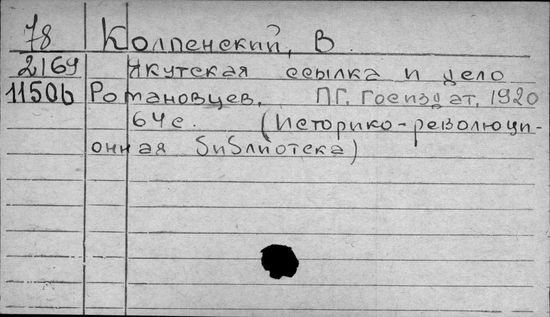 78 Колпенский, В.
2169 Якутская ссылка и дело
11506 Романовцев. ПГ. Госиздат, 1920
64с. (Историко-революци-
онная библиотека)